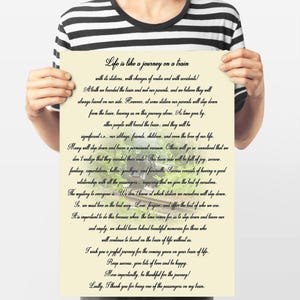 Life is like a journey on a train
with its stations, with changes of routes and with accidents!
At birth we boarded the train and met our parents, and we believe they will
always travel on our side. However, at some station our parents will step down
from the train, leaving us on this journey alone. As time goes by,
other people will board the train; and they will be
significant i.e., our siblings, friends, children, and even the love of our life.
Many will step down and leave a permanent vacuum. Others will go so unnoticed that we
don't realize that they vacated their seats! This train ride will be full of joy, sorrow,
fantasy, expectations, hellos, goodbyes, and farewells. Success consists of having a good
relationship with all the passengers requiring that we give the best of ourselves.
The mystery to everyone is: We don't know at which station we ourselves will step down.
So, we must live in the best way, Love, forgive, and offer the best of who we are.
It is important to do this because when the time comes for us to step down and leave our
seat empty, we should leave behind beautiful memories for those who
will continue to travel on the train of life without us.
I wish you a joyful journey for the coming years on your train of life.
Reap success, give lots of love and be happy.
More importantly, be thankful for the journey!
Lastly, I thank you for being one of the passengers on my train.